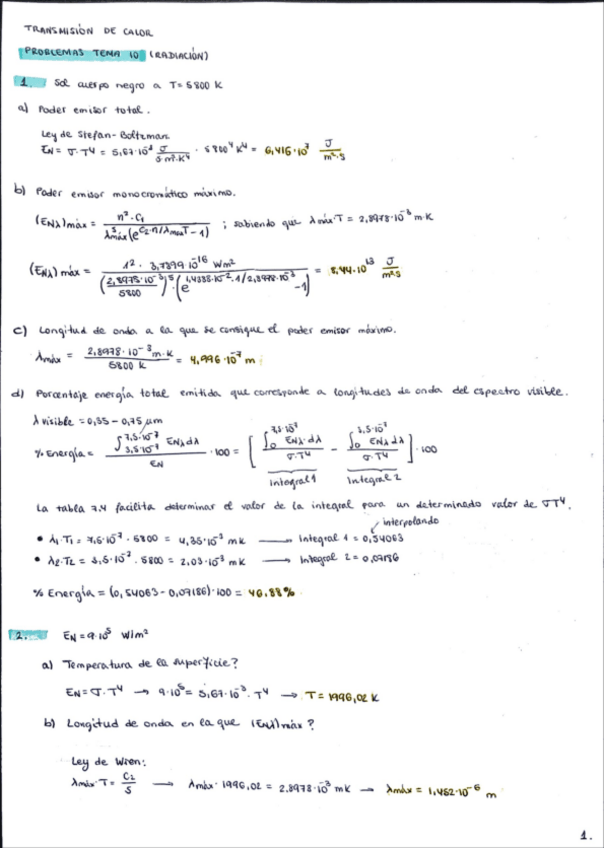 TRANSMISIÓN DE CALOR
PROBLEMAS TEMA 10 (RADIACIÓN)
1. Sol cuerpo negro a T= 5800 K
a) Poder emisor total.
Ley de Stefan-Boltzman
EN = σ·T⁴ = 5,67·10⁻⁸ J/s·m²·K⁴ · 5800⁴ K⁴ = 6,416·10⁷ J/m²·s
b) Poder emisor monocromático máximo.
(ENλ)máx = n²·C₁ / λ⁵máx(e^(C₂·n/λmáxT) -1) ; sabiendo que λmáx·T = 2,8978·10⁻³ m·K
(ENλ)máx = 1²·3,7399·10⁻¹⁶ Wm² / (2,8975·10⁻³/5800)⁵·(e^(1,4388·10⁻²·1/2,8978·10⁻³) -1) = 8,44·10¹³ J/m²s
c) Longitud de onda a la que se consigue el poder emisor máximo.
λmáx = 2,8978·10⁻³ m·K / 5800 K = 4,996·10⁻⁷ m
d) Porcentaje energía total emitida que corresponde a longitudes de onda del espectro visible.
λ visible = 0,35 - 0,75 μm
% Energía = ∫ 7,5·10⁻⁷ 3,5·10⁻⁷ ENλ dλ / EN ·100 = [ ∫₀ 7,5·10⁻⁷ ENλ·dλ / σ·T⁴ - ∫₀ 3,5·10⁻⁷ ENλ dλ / σ·T⁴ ]·100
Integral 1 Integral 2
La tabla 7.4 facilita determinar el valor de la integral para un determinado valor de σT⁴.
interpolando
• λ₁·T₁ = 7,5·10⁻⁷ · 5800 = 4,35·10⁻³ mK → Integral 1 = 0,54063
• λ₂·T₂ = 3,5·10⁻⁷ · 5800 = 2,03·10⁻³ mK → Integral 2 = 0,07186
% Energía = (0,54063 - 0,07186)·100 = 46,88%
2. EN = 9·10⁵ W/m²
a) Temperatura de la superficie?
EN = σ·T⁴ → 9·10⁵ = 5,67·10⁻⁸·T⁴ → T = 1996,02 K
b) Longitud de onda en la que (ENλ)máx?
Ley de Wien:
λmáx·T = C₂/5 → λmáx·1996,02 = 2,8978·10⁻³ mK → λmáx = 1,452·10⁻⁶ m
1.